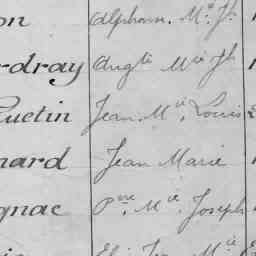 on Alphon. Mie Jh
rdray Augte Mie Jh
Quetin Jean Mie Louis
nard Jean Marie
gnac Pre Mie Joseph